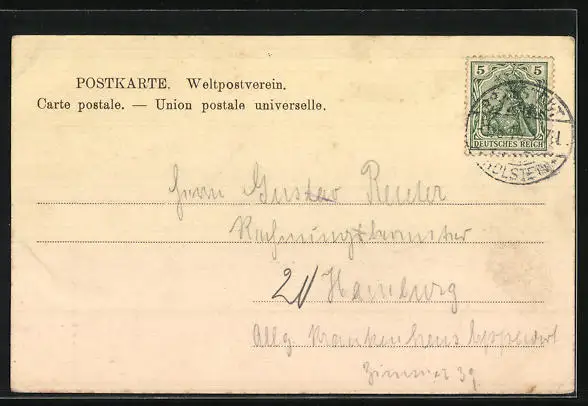 POSTKARTE. Weltpostverein.
Carte postale. — Union postale universelle.
5 5
DEUTSCHES REICH
HOLSTEIN
Herrn Gustav Reuter
Rechnungsbeamter
21 Hamburg
Allg. Krankenhaus Eppendorf
Zimmer 39